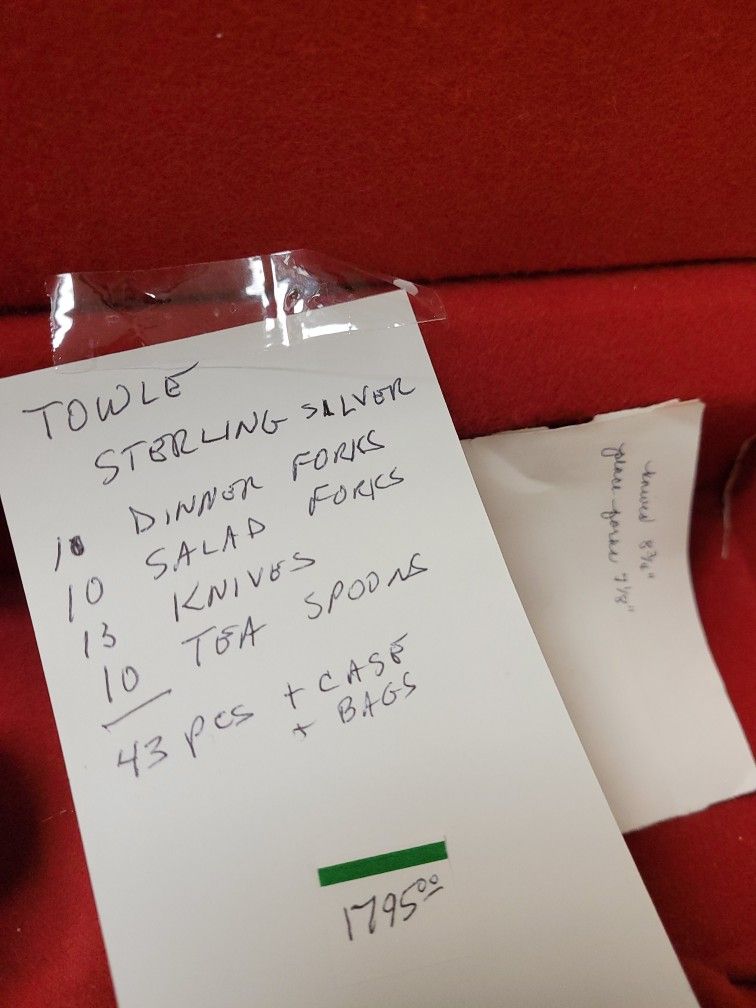 TOWLE
STERLING SILVER
10 DINNER FORKS
10 SALAD FORKS
13 KNIVES
10 TEA SPOONS
43 pcs + CASE
+ BAGS
1795.00
knives 8 3/4"
place forks 7 1/8"